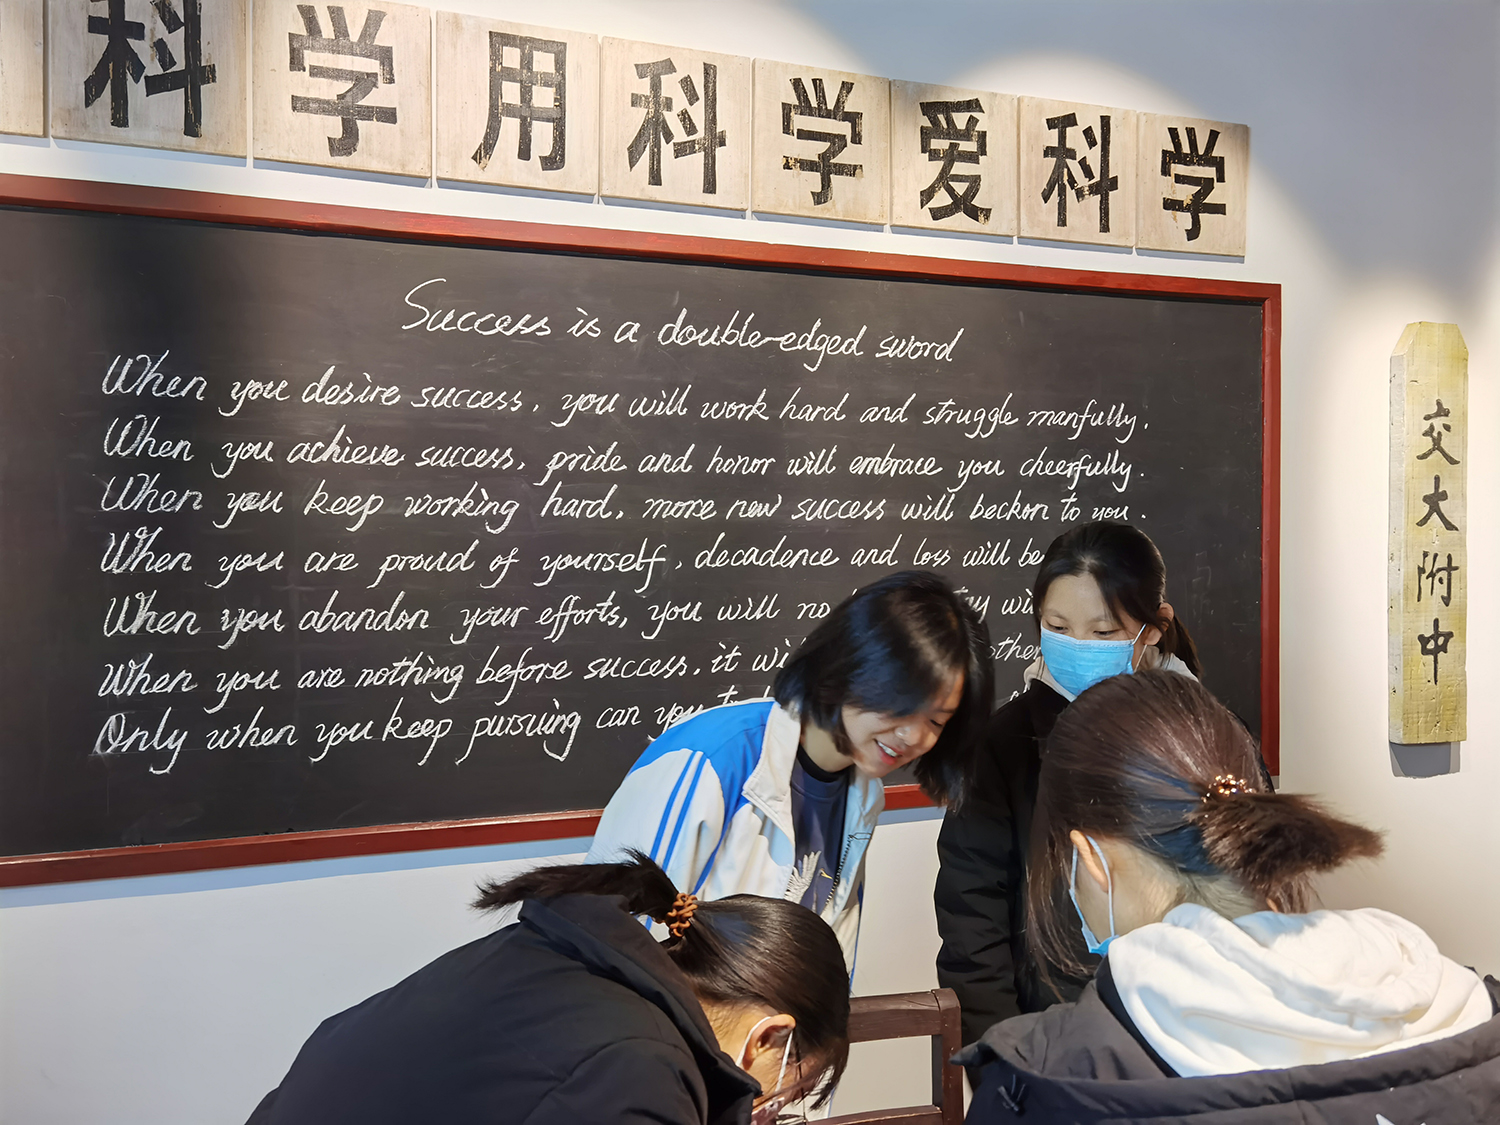 科学用科学爱科学
Success is a double-edged sword
When you desire success, you will work hard and struggle manfully.
When you achieve success, pride and honor will embrace you cheerfully.
When you keep working hard, more new success will beckon to you.
When you are proud of yourself, decadence and loss will be
When you abandon your efforts, you will no
When you are nothing before success, it
Only when you keep pursuing can you
交大附中